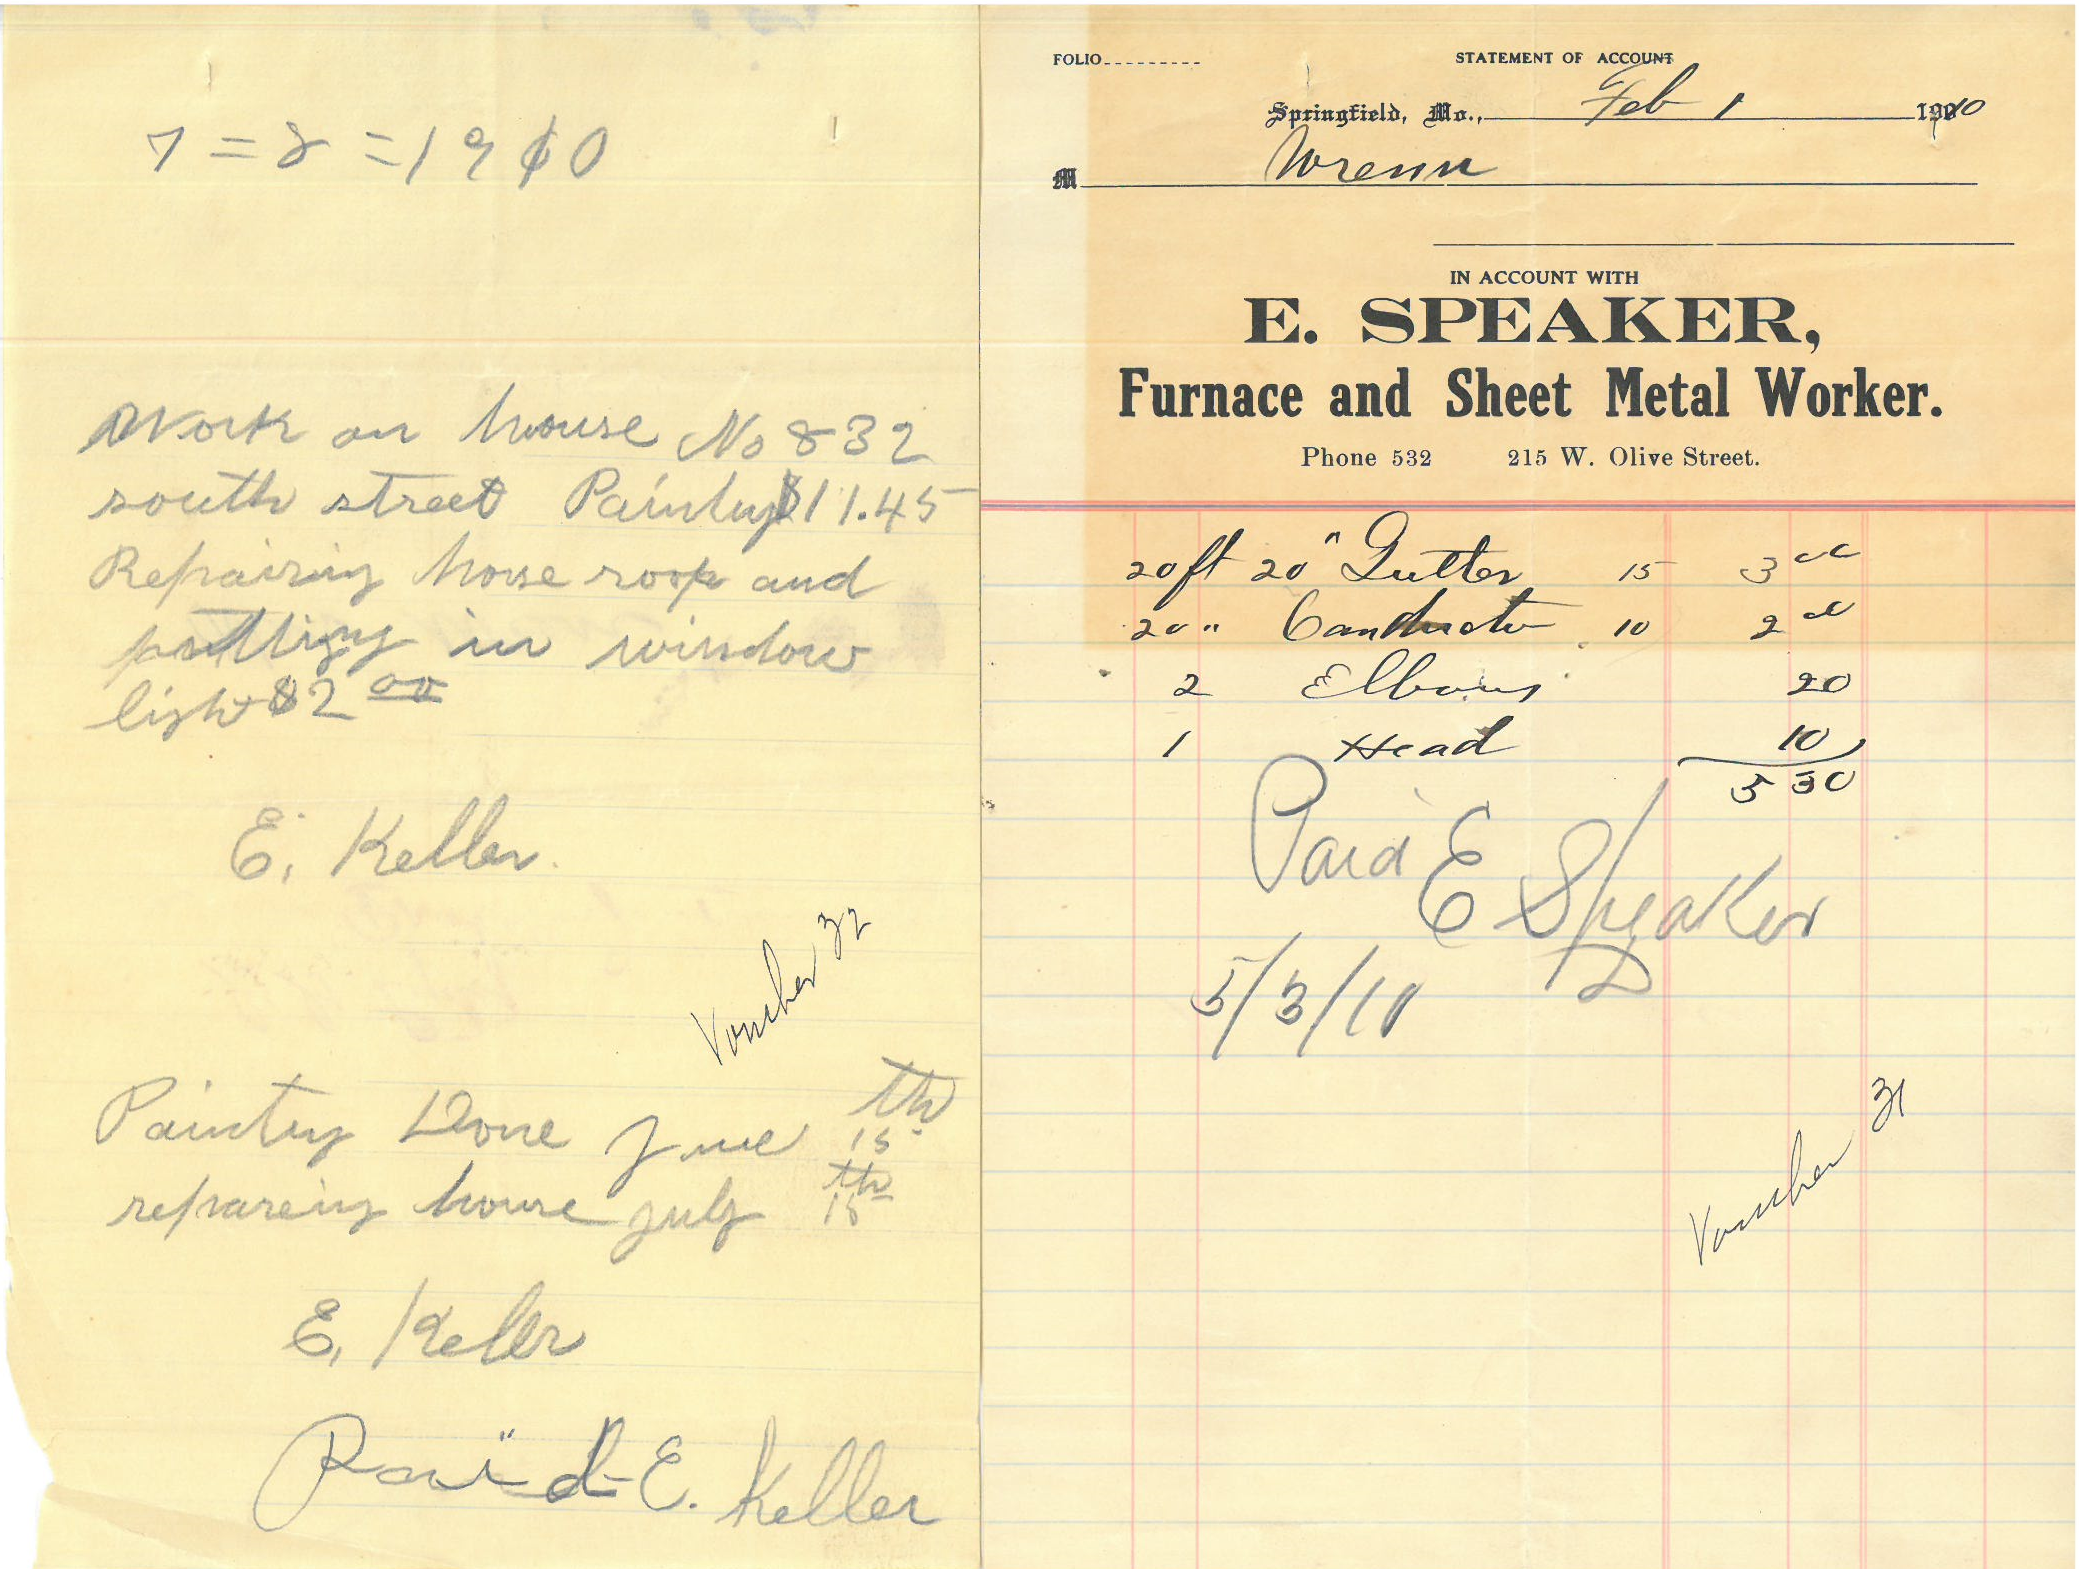 7 = 8 = 1910
Work on house No 832
south street Painting $11.45
Repairing house roof and
putting in window
light $2 00
E. Keller.
Voucher 32
Painting Done June 15th
repareing house july 15th
E. Keller
Paid E. Keller
FOLIO
STATEMENT OF ACCOUNT
Springfield, Mo., Feb 1 1910
M Wrenn
IN ACCOUNT WITH
E. SPEAKER,
Furnace and Sheet Metal Worker.
Phone 532 215 W. Olive Street.
20 ft 20" Gutter 15 3 00
20 " Conductor 10 2 00
2 Elbows 20
1 Head 10
5 30
Paid E Speaker
5/3/10
Voucher 31